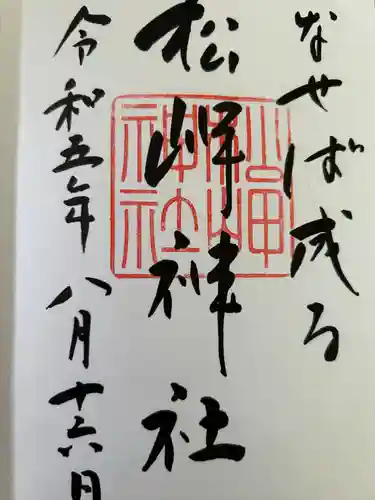 なせば成る
松岬神社
令和五年 八月十六日
松岬神社